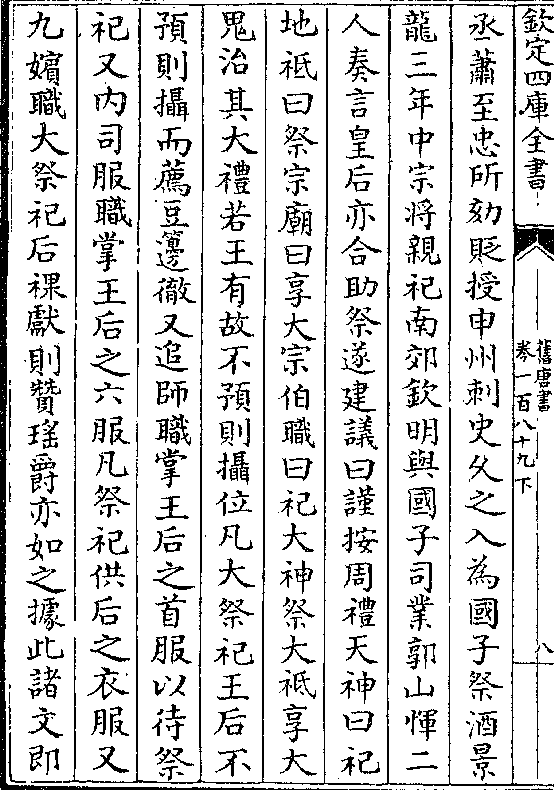 欽定四庫全書
舊唐書
卷一百八十九下
八
丞蕭至忠所劾貶授申州刺史久之入為國子祭酒景
龍三年中宗將親祀南郊欽明與國子司業郭山惲二
人奏言皇后亦合助祭遂建議曰謹按周禮天神曰祀
地祗曰祭宗廟曰享大宗伯職曰祀大神祭大祗享大
鬼治其大禮若王有故不預則攝位凡大祭祀王后不
預則攝而薦豆籩徹又追師職掌王后之首服以待祭
祀又内司服職掌王后之六服凡祭祀供后之衣服又
九嬪職大祭祀后祼獻則贊瑤爵亦如之據此諸文即